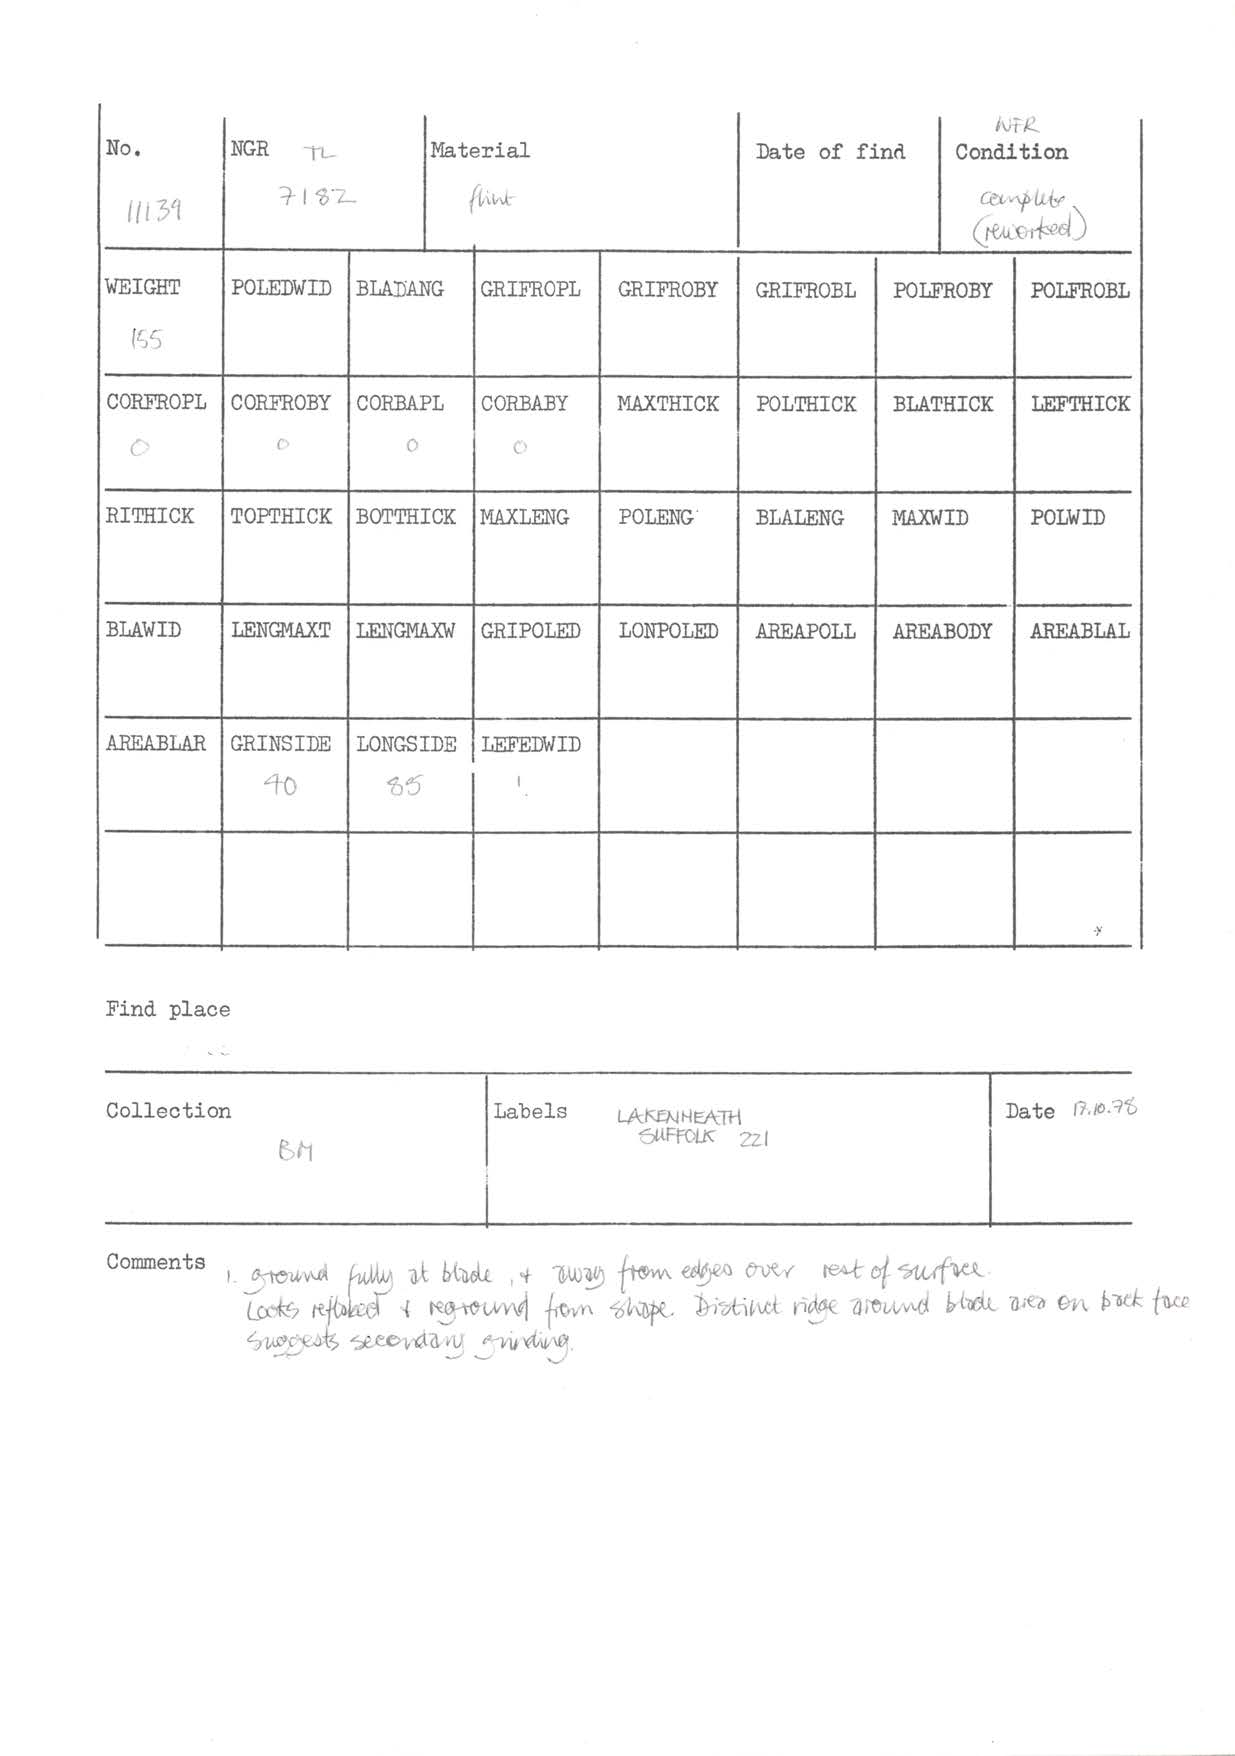 WFR
No. NGR TL Material Date of find Condition
11139 7182 flint complete
(reworked)
WEIGHT POLEDWID BLADANG GRIFROPL GRIFROBY GRIFROBL POLFROBY POLFROBL
155
CORFROPL CORFROBY CORBAPL CORBABY MAXTHICK POLTHICK BLATHICK LEFTHICK
0 0 0 0
RITHICK TOPTHICK BOTTHICK MAXLENG POLENG BLALENG MAXWID POLWID
BLAWID LENGMAXT LENGMAXW GRIPOLED LONPOLED AREAPOLL AREABODY AREABLAL
AREABLAR GRINSIDE LONGSIDE LEFEDWID
40 85 1.
Find place
Collection Labels LAKENHEATH Date 17.10.78
SUFFOLK 221
BM
Comments 1. ground fully at blade, & away from edges over rest of surface.
Looks reflaked & reground from shape. Distinct ridge around blade area on back face
suggests secondary grinding.